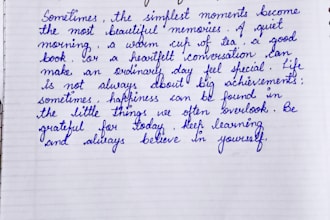 Sometimes, the simplest moments become
the most beautiful memories. A quiet
morning, a warm cup of tea, a good
book, or a heartfelt conversation can
make an ordinary day feel special. Life
is not always about big achievements;
sometimes, happiness can be found in
the little things we often overlook. Be
grateful for today, keep learning
and always believe in yourself.